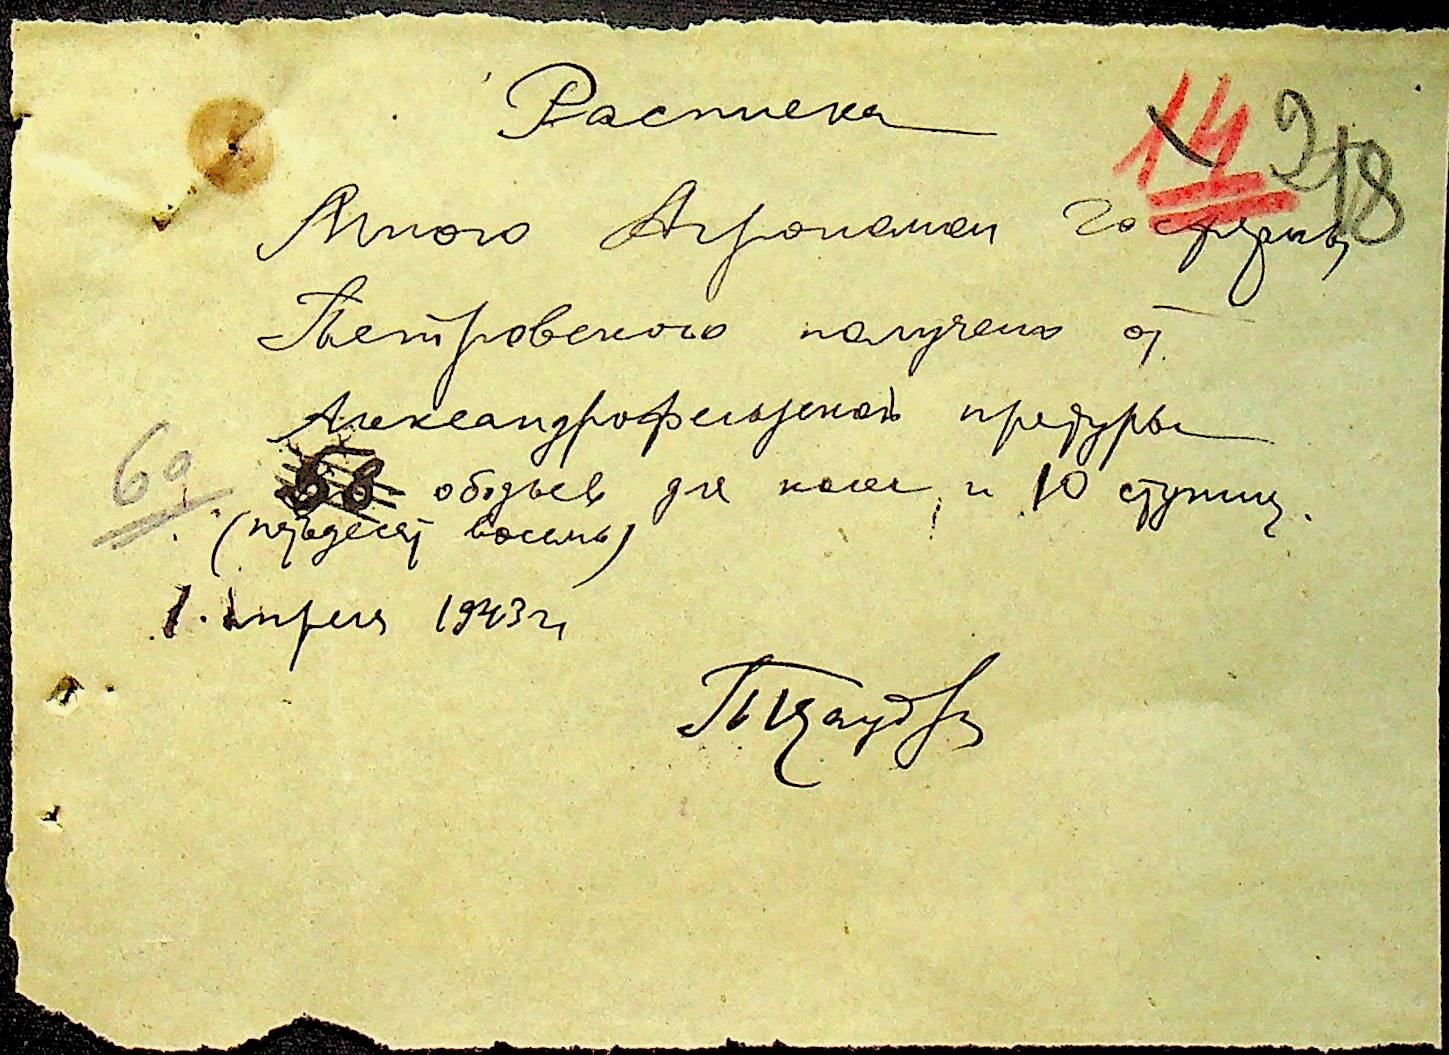 Расписка
14 218
Мною Агрономом Госфермы
Петровского получено от
Александрофельдской претуры
69 58 ободьев для колес и 10 ступиц.
(пятьдесят восемь)
1. Апреля 1943 г,